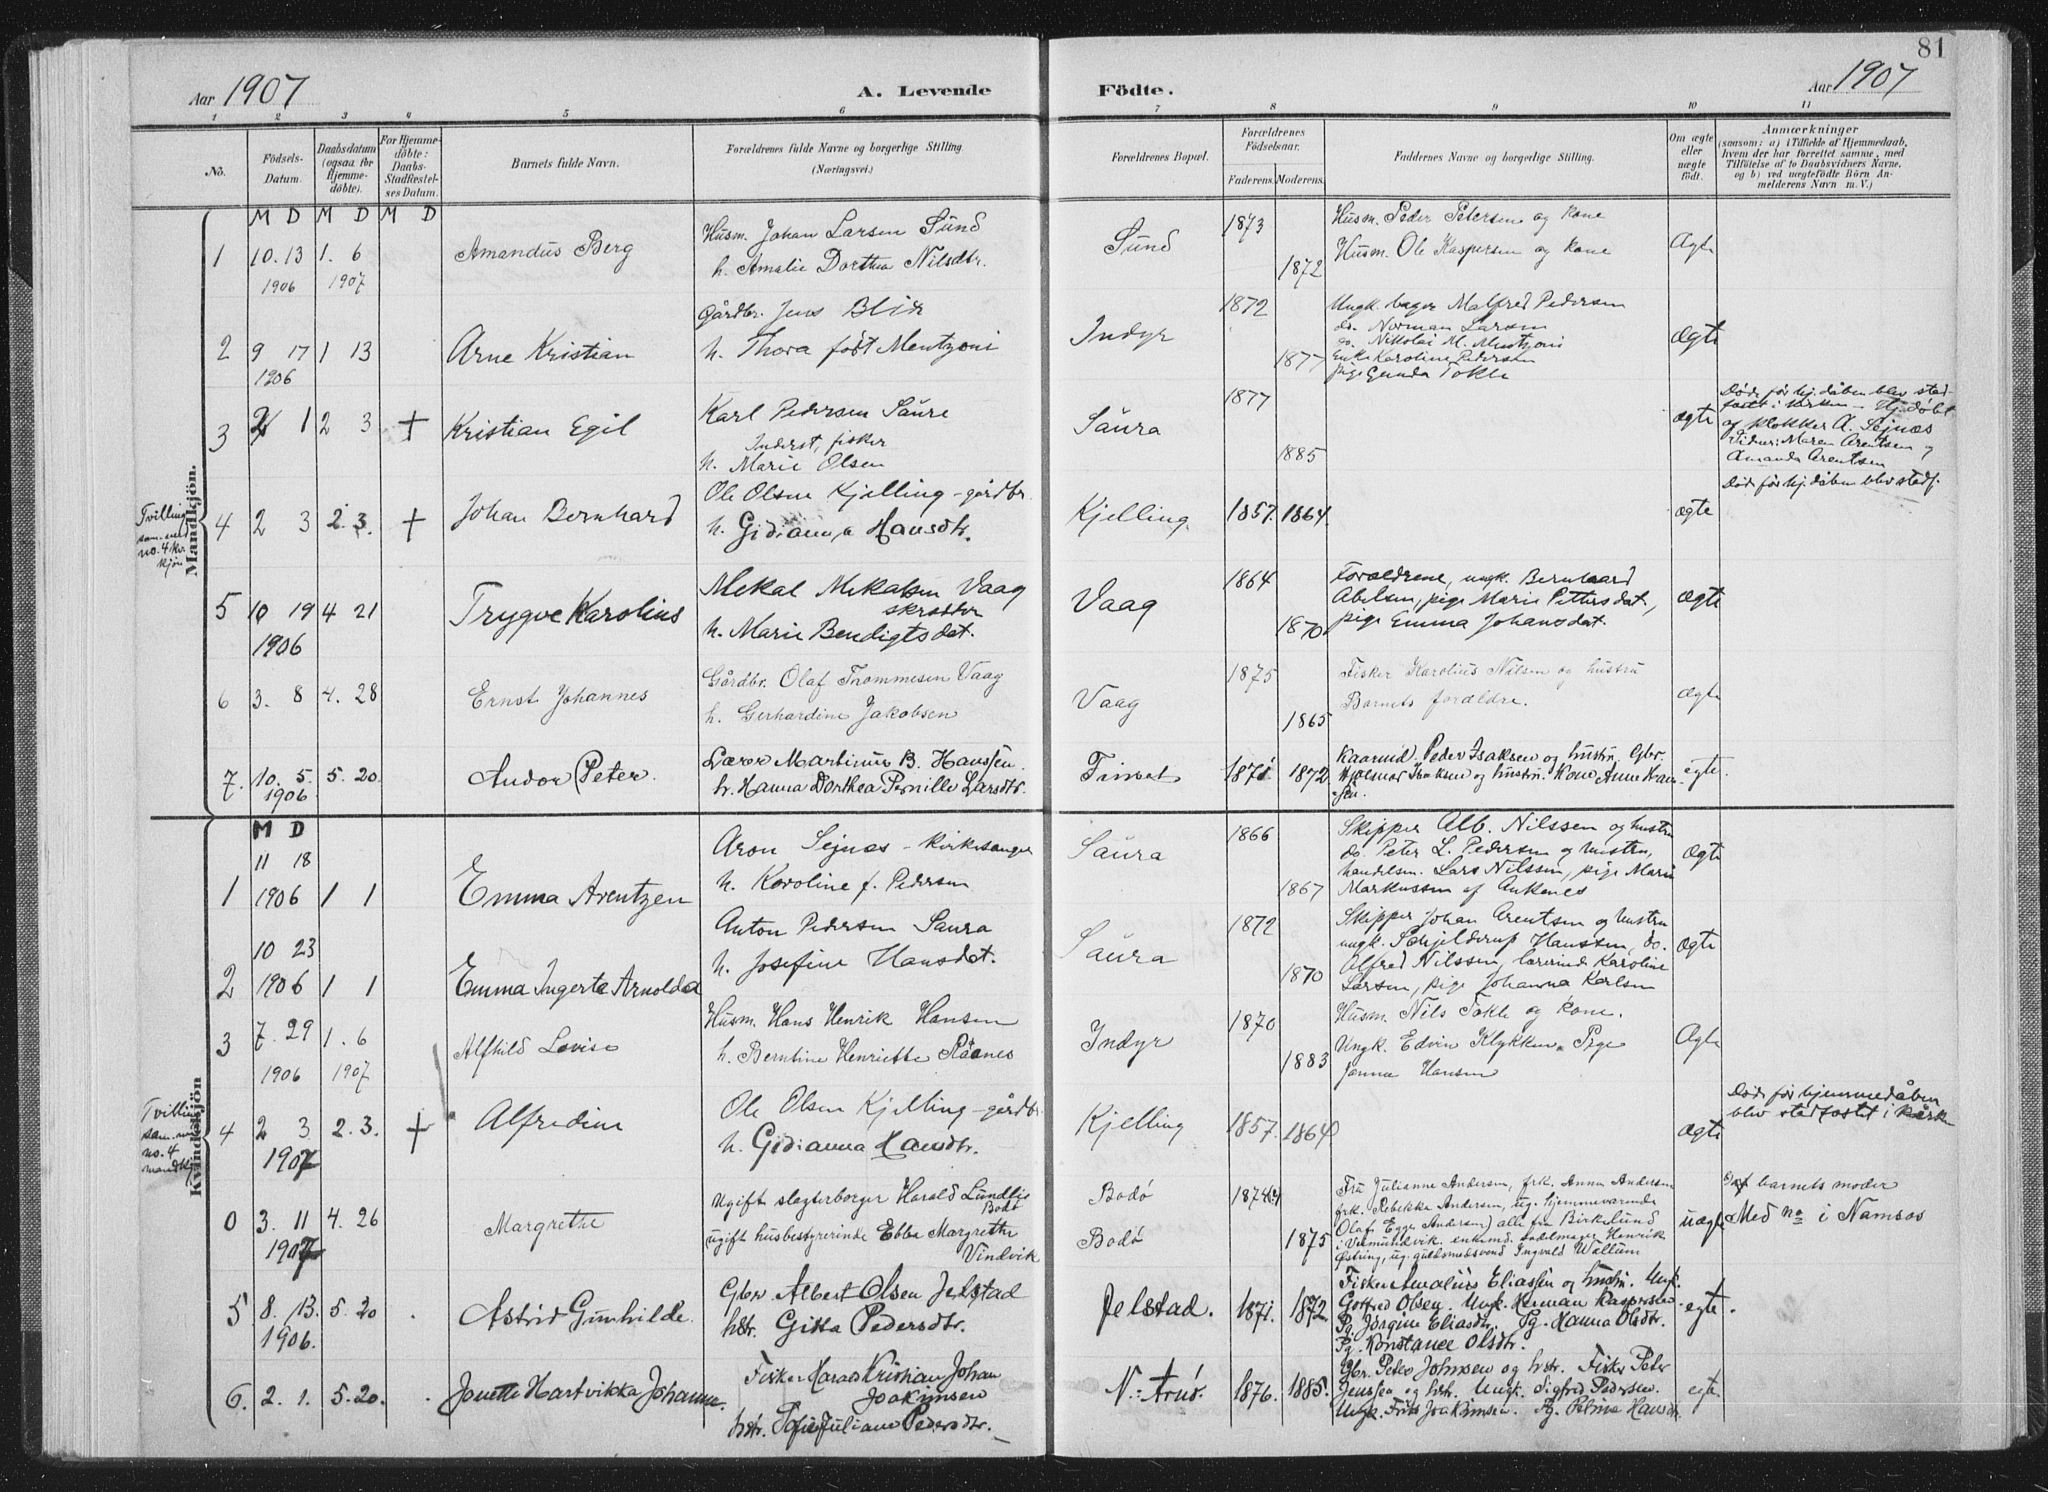 81
Aar 1907 A. Levende Födte. Aar 1907
1 2 3 4 5 6 7 8 9 10 11
No.
Födsels-Datum.
Daabsdatum (ogsaa for Hjemme-döbte).
For Hjemme-döbte: Daabs-Stadfæstel-ses Datum.
Barnets fulde Navn.
Forældrenes fulde Navne og borgerlige Stilling (Næringsvei.)
Forældrenes Bopæl.
Forældrenes Födselsaar.
Faderens. Moderens.
Faddernes Navne og borgerlige Stilling.
Om ægte eller uægte födt.
Anmærkninger
(saasom: a) i Tilfælde af Hjemmedaab, hvem der har forrettet samme, med Tilföielse af to Daabsvidners Navne, og b) ved uægtefödte Börn An-melderens Navn m. V.)
Mandkjön.
M D M D M D
1 10. 13 1. 6 Amandus Berg Husm. Johan Larsen Sund Sund 1873 Husm. Peder Petersen og kone Ægte
1906 1907 h. Amalie Dorthea Nilsdtr. 1872 Husm. Ole Kaspersen og kone
2 9 17 1 13 Arne Kristian Gårdbr. Jens Blix Indyr 1872 Ungk. bager Malfred Pedersen ægte
1906 h. Thora født Mentzoni 1877 do. Norman Larsen
do. Nikolai M. Mentzoni
Enke Karoline Pedersen
pige Gunda Tokle
3 2 1 2 3 + Kristian Egil Karl Pedersen Saura Saura 1877 ægte Døde før hj. dåben blev stad-
Inderst, fisker fæstet i kirken - Hj. døbt
h. Marie Olsen 1885 af klokker A. Sejnæs
Vidner: Maren Arentsen og
Amanda Arentsen
Tvilling sam. med no. 4 kv. kjøn
4 2 3 2. 3. + Johan Bernhard Ole Olsen Kjelling - gårdbr. Kjelling. 1857. 1864. ægte Døde før hj. dåben blev stadf.
h. Gidianna Hansdtr.
5 10 19 4 21 Trygve Karolius Mekal Mekalsen Vaag Vaag 1864 Forældrene, ungk. Bernhard ægte
1906 skrædder Abelsen, pige Marie Pettersdat,
h. Marie Bendigtsdat. 1870 pige Emma Johansdat.
6 3. 8 4. 28 Ernst Johannes Gårdbr. Olaf Trommesen Vaag Vaag 1875 Fisker Karolius Nilsen og hustru Ægte
h. Gerhardine Jakobsen 1865 Barnets forældre.
7. 10. 5. 5. 20. Andor Peter. Lærer Martinus B. Hanssen. 1871 1872 Peder Isaksen og hustru. Gbr. egte.
1906. h. Hanna Dorthea Pernille Larsdtr. Hjelmar Isaksen og hustru. Kone Anne Han-
sen.
Kvindekjön
M D
11 18 Aron Sejnæs - kirkesanger Saura 1866 Skipper Alb. Nilssen og hustru ægte
1 1906 1 1 Emma Arentzen h. Karoline f. Pedersen 1867 do. Peter L. Pedersen og hustru,
handelsm. Lars Nilssen, pige Marie
Markussen af Ankenes
10 23 Anton Pedersen Saura Saura 1872 Skipper Johan Arentsen og hustru ægte
2 1906 1 1 Emma Ingerte Arnolda h. Josefine Hansdat. 1870 ungk. Schjelderup Hanssen, do.
Alfred Nilssen, lærerinde Karoline
Larsen, pige Johanna Karlsen
3 7. 29 1. 6 Alfhild Lovise Husm. Hans Henrik Hansen Indyr 1870 Husm. Nils Tokle og kone. Ægte
1906 1907 h. Berntine Henriette Råånes 1883 Ungk. Edvin Klykken. Pige
Janna Hansen
Tvilling sam. m. no. 4 mandkj.
4 2 3 2. 3. + Alfredine Ole Olsen Kjelling - gårdbr. Kjelling 1857. 1864 ægte Døde før hjemmedåben
1907 h. Gidianna Hansdtr. blev stadfæstet i kirk
0 3. 11 4. 26 Margrethe Ugift slagterborger Harald Lundlie Bodø 1874 Fru Julianne Andersen, frk. Anna Andersen uægte barnets moder
1907 Bodø frk. Rebekka Andersen, ug. hjemmeværende Med no i Namsos
ugift husbestyrerinde Ebba Margrethe Bodø 1875 Olaf Egge Andersen) alle fra Birkelund
Vindvik i Vemundvik. enkemd. sadelmager Henrik
Østring, ug. guldsmedsvend Ingvald Wallum
5 8. 13. 5. 20 Astrid Gunhilde. Gbr. Albert Olsen Jelstad Jelstad. 1871. 1872. Fisker Amalius Eliassen og hustru. Ungk. egte.
1906. hstr. Gitta Pedersdtr. Gotfred Olsen. Ungk. Herman Kaspersen
Pg. Jørgine Eliasdtr. Pg. Hanna Olsdtr.
Pg. Konstance Olsdtr.
6. 2. 1. 5. 20. Jenette Hartvikka Johanna. Fisker Harald Kristian Johan N. Arnø. 1876. 1885. Gbr. Peter Johnsen og hstr. Fisker Peter egte.
Joakimsen Jenssen og hstr. Ungk. Sigfred Pedersen.
hstr. Sofie Juliane Pedersdtr. Ungk. Frits Joakimsen. Pg. Petrine Hansdtr.